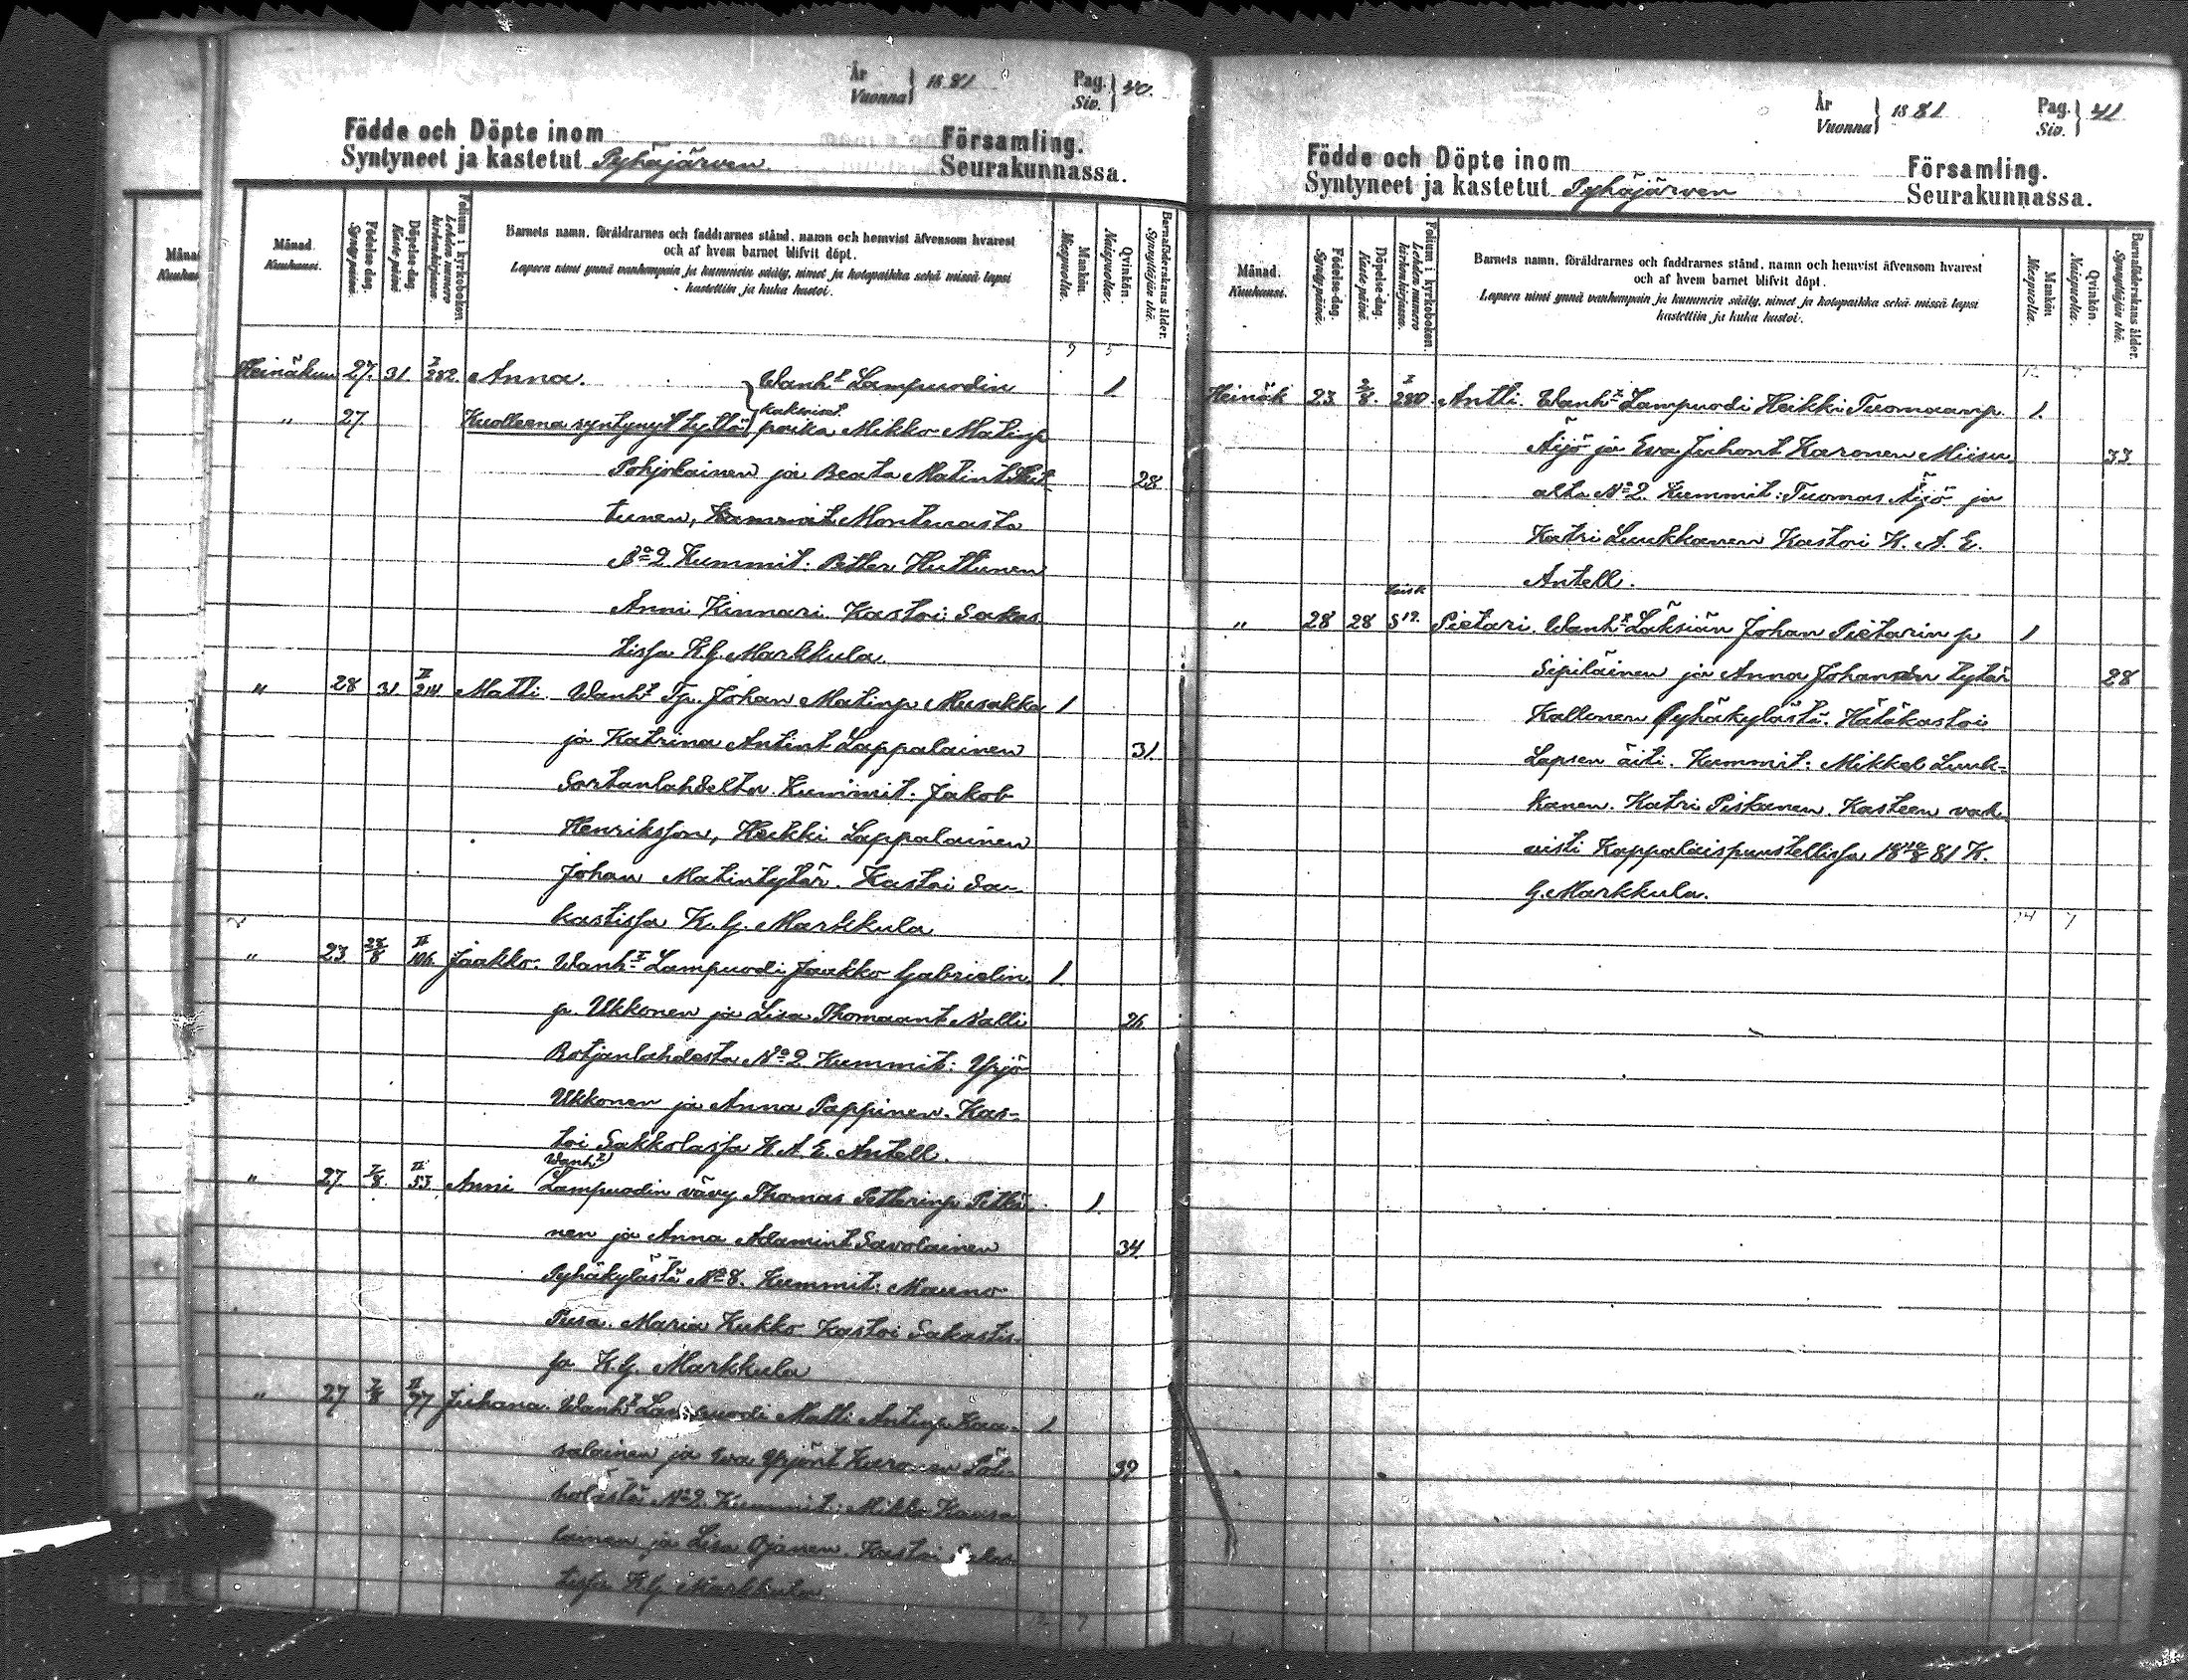 År
Vuonna } 1881
Pag.
Siv. } 40.
Födde och Döpte inom Församling.
Syntyneet ja kastetut Pyhäjärven Seurakunnassa.
Månad.
Kuukausi.
Födelse-dag.
Synty-päivä.
Döpelse-dag.
Kaste-päivä
Folium i kyrkoboken.
Lehden numero kirkonkirjassa.
Barnets namn, föräldrarnes och faddrarnes stånd, namn och hemvist äfvensom hvarest
och af hvem barnet blifvit döpt.
Lapsen nimi ynnä vanhempain ja kummein sääty, nimet ja kotopaikka sekä missä lapsi
kastettiin ja kuka kastoi.
Mankön.
Miespuolia.
Qvinkön.
Naispuolia.
Barnaföderskans ålder.
Synnyttäjän ikä.
9 5
Heinäkuu 27. 31. I 282. Anna. Wanht Lampuodin 1
kaksiset
" 27. Kuolleena syntynyt tyttö } poika Mikko Matinp
Pohjolainen ja Beata Matint Hut- 28
tunen, Montuusta
No 2 Kummit. Petter Huttunen
Anni Kinnari. Kastoi Sakas
tissa K.G. Markkula.
" 28 31 II 214 Matti. Wanht Tp. Johan Matinp Musakka 1
ja Katrina Antint Lappalainen 31.
Sortanlahdelta. Kummit. Jakob
Henriksson, Heikki Lappalainen
Johan Matintytär. Kastoi Sa-
kastissa K.G. Markkula
" 23 28/8 II 106. Jaakko. Wanht Lampuodi Jaakko Gabrielin 1
p. Ukkonen ja Lisa Thomaant Nalli 26
Rotjanlahdesta No 2 Kummit: Yrjö
Ukkonen ja Anna Pappinen. Kas-
toi Sakkolassa K A. E. Antell.
Wanht
" 27 7/8 II 53 Anni Lampuodin vävy Thomas Petterinp Pitkä- 1
nen ja Anna Adamint Savolainen 34.
Pyhäkylästä No 8. Kummit: Mauno
Pusa. Maria Kukko Kastoi Sakastis-
sa K.G. Markkula
" 27 7/8 II 77 Juhana. Wanht Lampuodi Matti Antinp. Kaa- 1
salainen ja Eva Yrjönt Karonen Pöl- 39
holästä No 2. Kummit: Mikko Kaasa
lainen ja Lisa Ojanen. Kastoi Sakas
tissa K G Markkula
År
Vuonna } 1881
Pag.
Siv. } 41
Födde och Döpte inom Församling.
Syntyneet ja kastetut Pyhäjärven Seurakunnassa.
Månad.
Kuukausi.
Födelse-dag.
Synty-päivä.
Döpelse-dag.
Kaste-päivä.
Folium i kyrkoboken.
Lehden numero kirkonkirjassa.
Barnets namn, föräldrarnes och faddrarnes stånd, namn och hemvist äfvensom hvarest
och af hvem barnet blifvit döpt.
Lapsen nimi ynnä vanhempain ja kummein sääty, nimet ja kotopaikka sekä missä lapsi
kastettiin ja kuka kastoi.
Mankön
Miespuolia.
Qvinkön.
Naispuolia.
Barnaföderskans ålder.
Synnyttäjän ikä.
Heinäk 23 2/8. I 280. Antti. Wanht Lampuodi Heikki Tuomaanp. 1.
Äijö ja Eva Juhont Karonen Miisu 33.
alta No 2. Kummit: Tuomas Äijö ja
Katri Luukkanen Kastoi K. A. E.
Antell.
" 28 28 S 19. Pietari. Wanht Läksiän Johan Pietarin p 1
Sipiläinen ja Anna Johanan tytär 28
Kallonen Pyhäkylästä. Hätäkastoi
Lapsen äiti. Kummit: Mikkel Luuk-
kanen. Katri Piskanen. Kasteen vah-
visti Kappalaispuustellissa 18 /8 81 K.
G. Markkula.
14 7